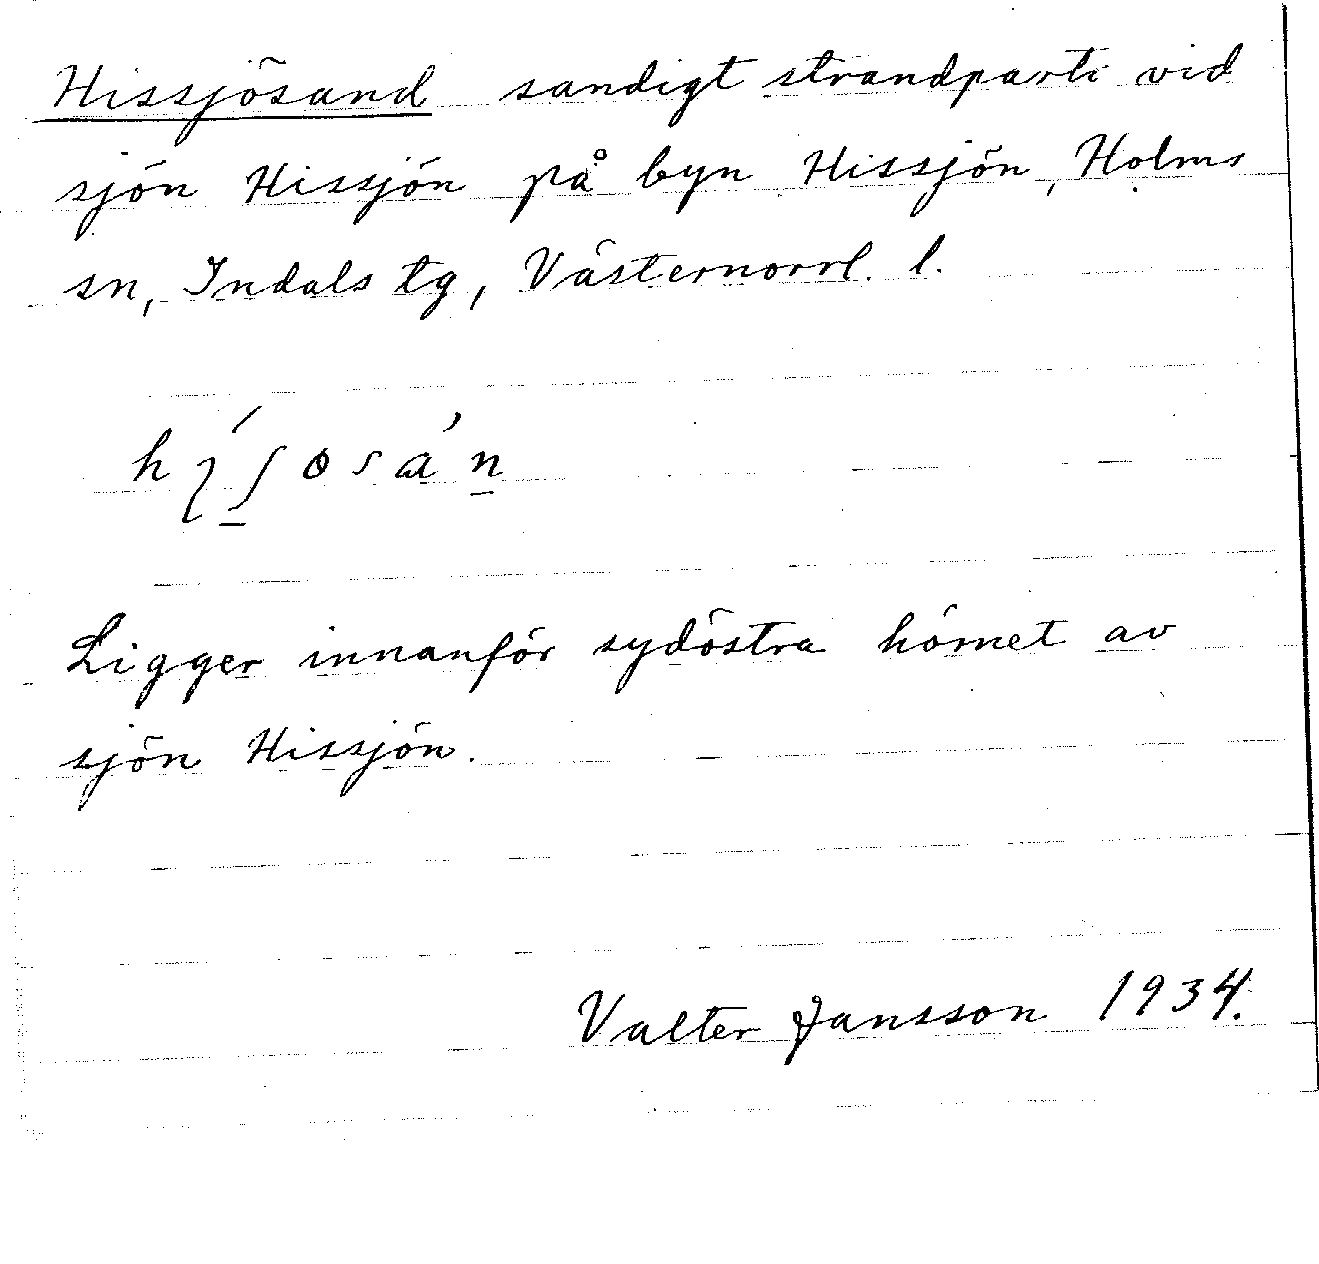 Hissjösand sandigt strandparti vid
sjön Hissjön på byn Hissjön, Holms
sn, Indals tg, Västernorrl. l.
Ligger innanför sydöstra hörnet av
sjön Hissjön.
Valter Jansson 1934.